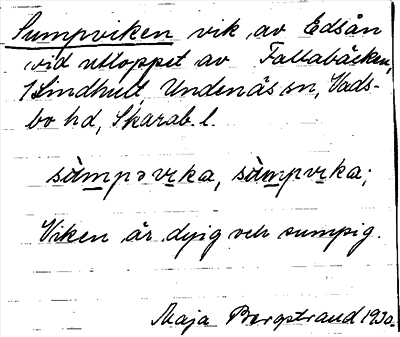 Sumpviken vik av Edsån
vid utloppet av Fallabäcken,
Lindhult, Undenäs sn, Vads-
bo hd, Skarab. l.
sùmpəvika, sùmpvika;
Viken är dyig och sumpig.
Maja Bergstrand 1930.